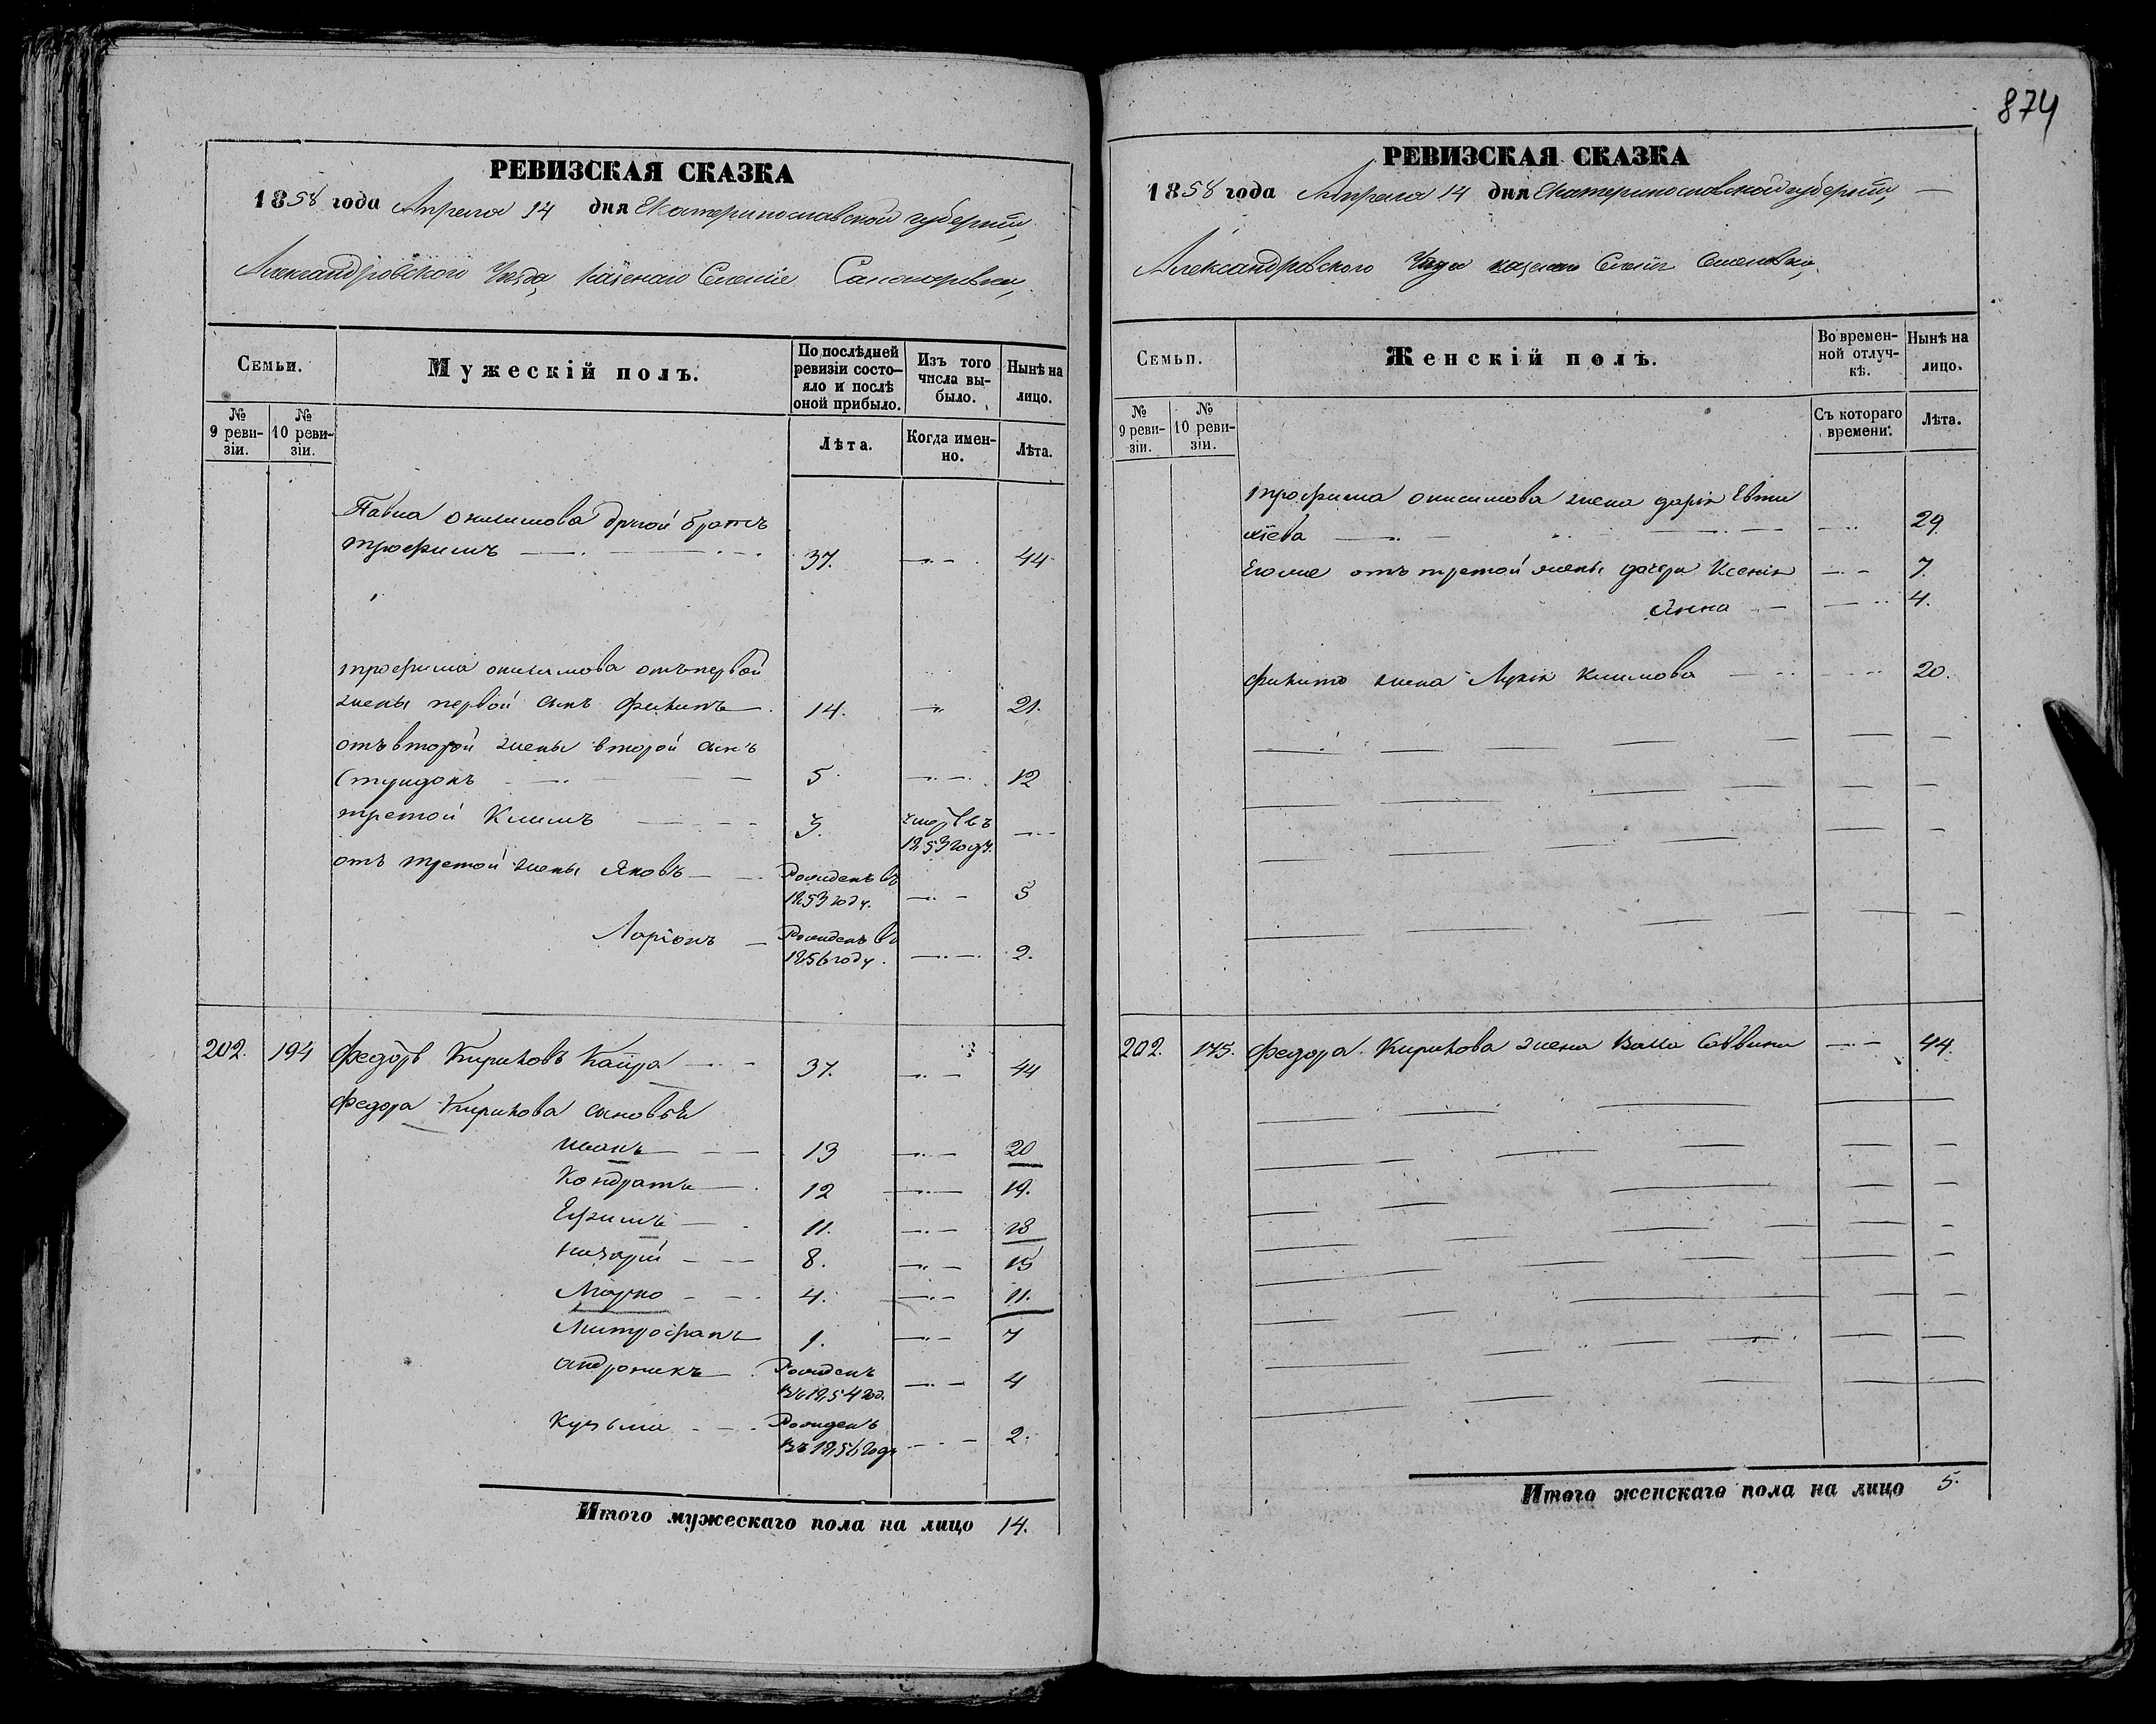 874
РЕВИЗСКАЯ СКАЗКА
1858 года Апреля 14 дня Екатеринославской губернии,
Александровского Уезда, казенного Селения
Семьи.
Мужескій полъ.
По послѣдней ревизіи состо-
яло и послѣ
оной прибыло.
Изъ того
числа вы-
было.
Нынѣ на
лицо.
№
9 реви-
зіи.
№
10 реви-
зіи.
Лѣта.
Когда имен-
но.
Лѣта.
Павла онисимова другой братъ
трофимъ 37. 44
трофима онисимова отъ первой
жены первой сынъ филипъ 14. 21.
отъ второй жены второй сынъ
5. 12
третой Климъ 3. умер въ
1853 году.
отъ третой жены Яковъ Рожденъ въ
1853 году. 5
Ларіонъ Рожденъ въ
1856 году. 2.
202. 194 Федоръ Кириковъ 37. 44
Федора Кирикова сыновья
Иванъ 13 20
Кондратъ 12 19.
Ефимъ 11. 18
назарій 8. 15
Марко 4. 11.
Митрофанъ 1. 7
андроникъ Рожденъ
въ 1854 год. 4
Кузьма Рожденъ
въ 1856 году 2.
Итого мужескаго пола на лицо 14.
РЕВИЗСКАЯ СКАЗКА
1858 года Апреля 14 дня Екатеринославской губернии,
Александровского Уезда казенного Селения
Семьи.
Женскій полъ.
Во времен-
ной отлуч-
кѣ.
Нынѣ на
лицо.
№
9 реви-
зіи.
№
10 реви-
зіи.
Съ котораго
времени.
Лѣта.
трофима онисимова жена дарія Евти
хіева 29.
Егоже отъ третой жены дочери Ксенія 7.
Анна 4.
филипа жена Климова 20.
202. 175. Федора Кирикова жена 44.
Итого женскаго пола на лицо 5.